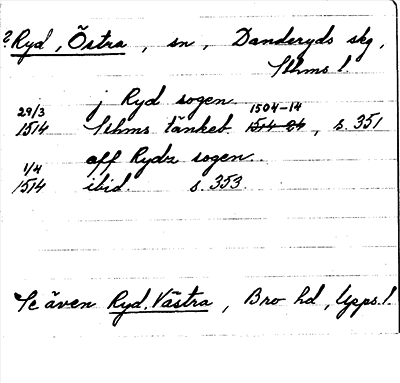 ? Ryd, Östra, sn, Danderyds skg,
Sthms l.
j Ryd sogen
29/3 1514 Sthms tänkeb. 1514-24 1504-14, s. 351
aff Rydz sogen.
1/4 1514 ibid. s. 353.
Se även Ryd, Västra, Bro hd, Upps. l.